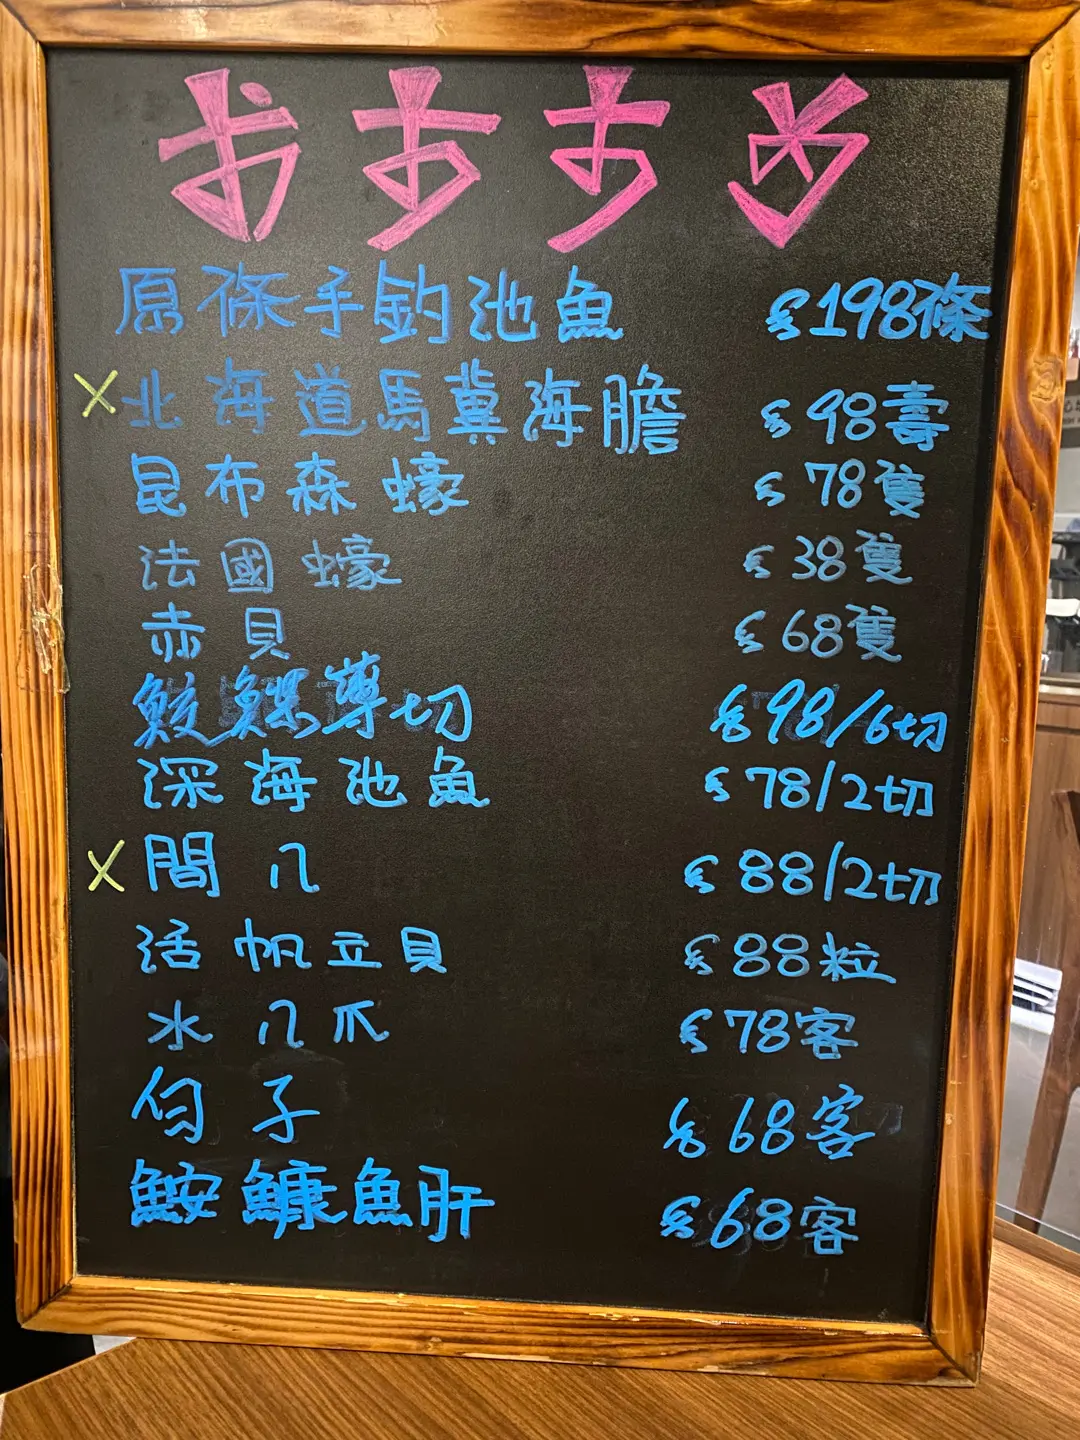 おすすめ
原條手釣池魚 $198條
X北海道馬糞海膽 $98壽
昆布森蠔 $78隻
法國蠔 $38隻
赤貝 $68隻
鮫鰈薄切 $98/6切
深海池魚 $78/2切
X間八 $88/2切
活帆立貝 $88粒
水八爪 $78客
匀子 $68客
鮟鱇魚肝 $68客